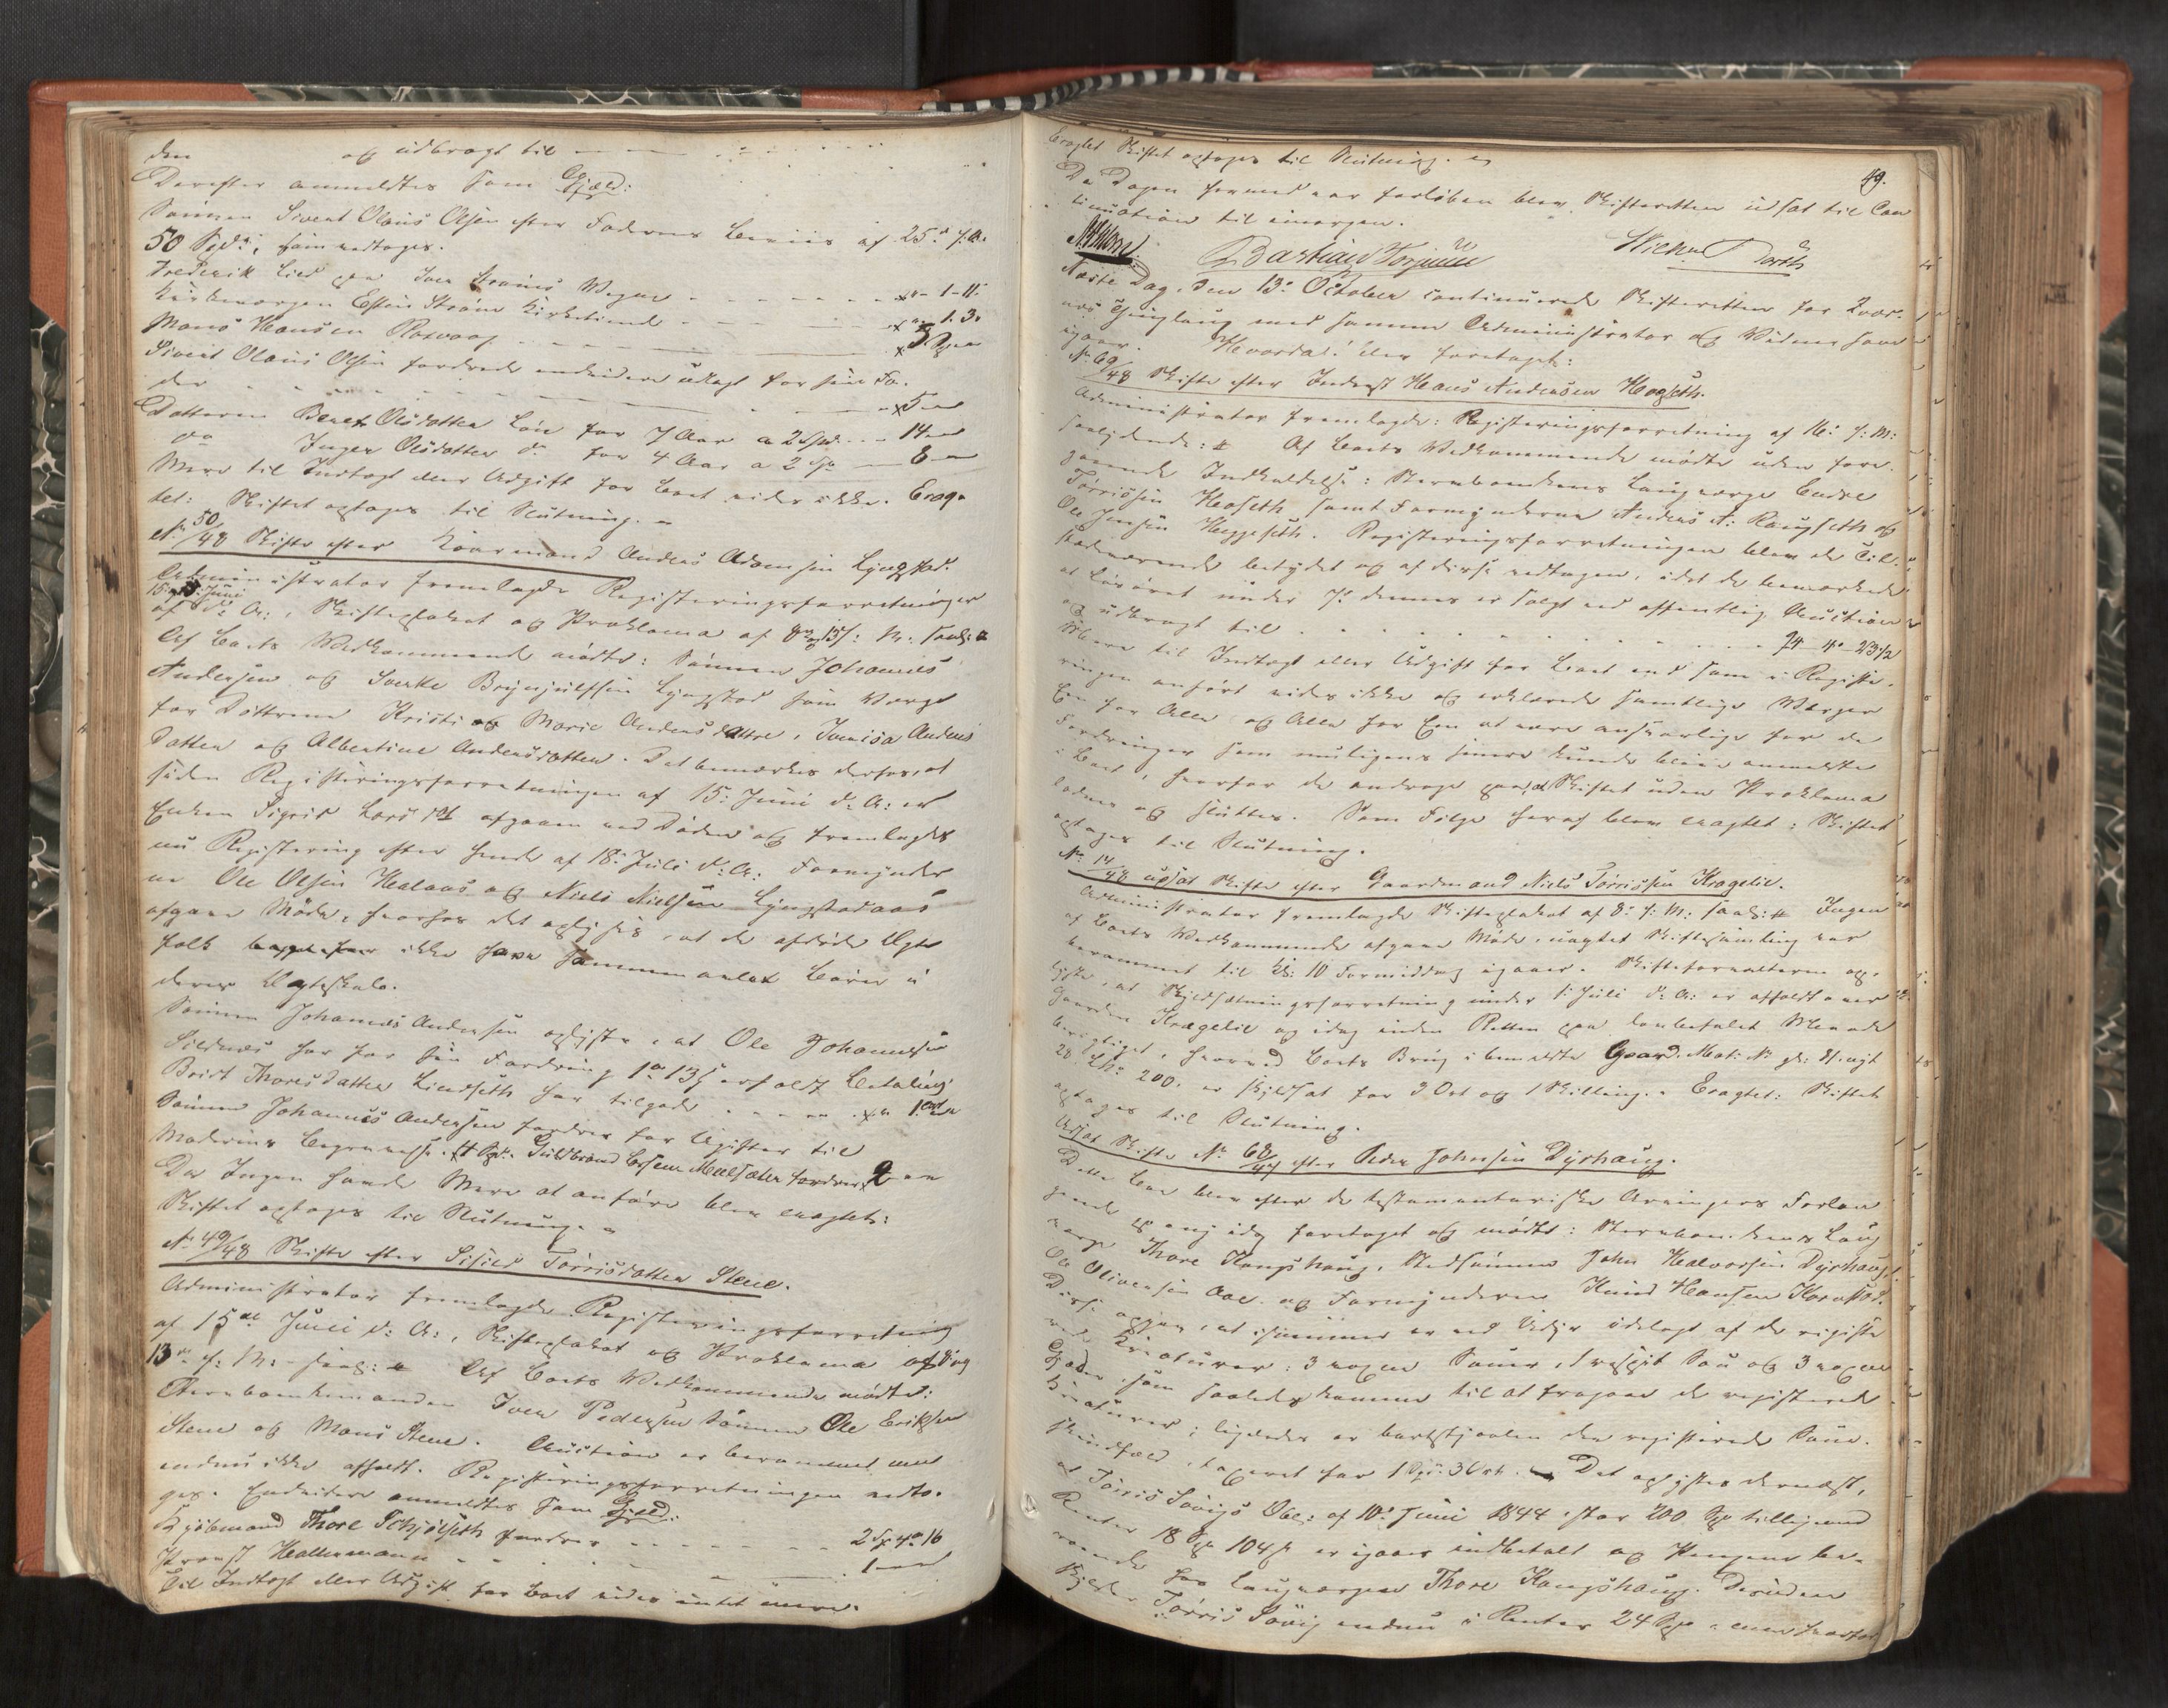 den og udbragt til
Derefter anmeldtes som Gjæld:
Sönnen Sivert Olaus Olsen efter Faderens Beviis af 25 f. A.
50 Spd, som vedtoges.
Frederik Lied paa Iver Stroms Vegne - 1 - 11
Kirkeværgen Esten Ström Kirketiende 1. 3
Mons Hansen Rosvaag 3
Sivert Olaus Olsen fordrede endvidere udlagt for sin Fa-
der 5
Datteren Beret Olsdatter Lön for 7 Aar a 2 Spd 14
do Inger Olsdatter do for 4 Aar a 2 Sp 8
Mere til Indtægt eller Udgift for Boet vides ikke. Erag-
tet: Skiftet optages til Slutning.
No 50/48 Skifte efter Kaarmand Anders Adamsen Lyngstad.
Administrator fremlagde Registeringsforretninger
af 15 Juni d: A:, Skifteplakat og Proklama af 8 og 13 f: M:
Af Boets Vedkommende mödte: Sönnen Johannes
Andersen og Sverke Brynjulfsen Lyngstad som Værge
for Döttrene Kristi og Marie Andersdattre, Anders
datter og Albertine Andersdatter. Det bemærkes derhos, at
siden Registeringsforretningen af 15: Juni d: A: er
Enken Sigrid Larsdt afgaaen ved Döden og fremlagdes
nu Registering efter hende af 18: Juli d: A: Formynder
ne Ole Olsen Halaas og Niels Nielsen Lyngstadaas
afgave Möde, hvorhos det oplyses, at de afdöde Ægte
folk ikke have sammenavlet Börn i
deres Ægteskab.
Sönnen Johannes Andersen oplyste, at Ole Johannesen
Sildnes har for sin Fordring 1 13 erholdt Betaling
Brit Thoresdatter Lindseth har tilgode 1
Sönnen Johannes Andersen fordrer for Udgifter til
Moderens Begravelse Guldbrand Malsæter fordrer 2
Da Ingen havde Mere at anföre blev eragtet:
Skiftet optages til Slutning.
No 49/48 Skifte efter Sisil Törrisdatter Stene.
Administrator fremlagde Registeringsforretning
af 15de Juni d: A:, Skifteplakat og Proklama af 8 og
13 f: M: Af Boets Vedkommende mödte:
Stervboenkemanden Iver Pedersen Sönnen Ole Eriksen
Stene og Mons Stene. Auction er berammet men
endnu ikke afholdt. Registeringsforretningen vedto-
ges. Endvidere anmeldtes som Gjæld:
Kjöbmand Thore Schjölseth fordrer 2 Sp 4 16
Provst Hallermann 1
Til Indtægt eller Udgift for Boet vides intet mere.
49.
Eragtet Skiftet optages til Slutning.
Da Dagen hermed var forlöben blev Skifteretten udsat til Con
tinuation til imorgen.
Bastian Torjusen
Næste Dag, den 13 October continuerede Skifteretten for Qver-
næs Thinglaug med samme Administrator og Vidner som
igaar. Hvorda! blev foretaget:
No 69/48 Skifte efter Inderst Hans Andersen Hogseth.
Administrator fremlagde: Registeringsforretning af 16: f: M:
saalydende: Af Boets Vedkommende mödte uden fore-
gaaende Indkaldelse: Stervboenkens Laugværge Endre
Törrisen Hogseth samt Formynderne Anders A: Raugseth og
Ole Jensen Heggeseth. Registeringsforretningen blev de Til-
stædeværende betydet og af disse vedtagen, idet de bemærkede
at Lösöret under 7: dennes er solgt ved offentlig Auction
og udbragt til 74 - 4 - 23 1/2
Mere til Indtægt eller Udgift for Boet end som i Registe-
ringen anfört vides ikke og erklærede samtlige Værger
Een for Alle og Alle for Een at være ansvarlige for de
Fordringer som muligens senere kunde blive anmeldte
i Boet, hvorfor de androge paa, at Skiftet uden Proklama
lades og sluttes. Som Fölge heraf blev eragtet: Skiftet
optages til Slutning.
No 14/48 udsat Skifte efter Gaardmand Niels Törrissen Kragelie.
Administrator fremlagde Skifteplakat af 8: f: M: Ingen
af Boets Vedkommende afgave Möde, uagtet Skiftesamling var
berammet til Kl: 10 Formiddag igaar. Skifteforvalteren op-
lyste, at Skyldsætningsforretning under 1 Juli d: A: er afholdt over
Gaarden Krægelie og idag inden Retten paa lovbefalet Maade
berigtiget, hvorved Boets Brug i bemeldte Gaard. Mat: No
28. Lno 200, er skyldsat for 3 Ort og 1 Skilling. Eragtet: Skiftet
optages til Slutning.
Udsat Skifte No 68/47 efter Peder Johnsen Dyrhaug.
Dette Boe blev efter de testamentariske Arvingers Forlan
gende og idag foretaget og mödte: Stervboenkens Laug
værge Thore Kongshaug, Stedsönnen John Halvorsen Dyrhaug,
Ole Oliversen Aae og Formynderen Knud Hansen Hornstad.
Disse opgave, at isommer er ved Udyr ödelagt af de registe
rede Kreaturer: 3 voxne Souer, 1 Sou og 3 voxne
Geder, som saaledes komme til at fragaae de registerede
Kreaturer; ligeledes er bortstjaalen den registerede
Skindfæld, taxeret for 1 Spd 3 Ort. Det oplystes dernæst,
at Törris Sövigs Obl: af 10 Juni 1844 stor 200 Sp tilligemed
Renter 18 Sp 104 er igaar indbetalt og Pengene be-
roende hos Laugværgen Thore Kongshaug. Desuden
skylder Törris Sövig endnu i Renter 24 Sp